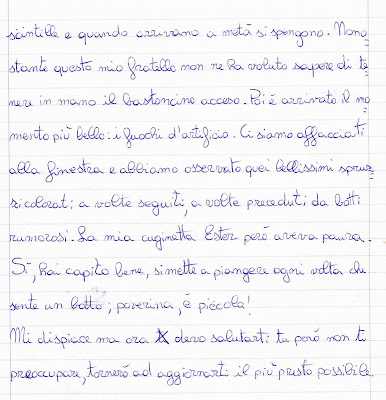 scintille e quando arrivano a metà si spengono. Nono
stante questo mio fratello non ne ha voluto sapere di te
nere in mano il bastoncino acceso. Poi è arrivato il mo
mento più bello: i fuochi d'artificio. Ci siamo affacciati
alla finestra e abbiamo osservato quei bellissimi spruz
zi colorati; a volte seguiti, a volte preceduti da botti
rumorosi. La mia cuginetta Ester però aveva paura.
Sì, hai capito bene, si mette a piangere ogni volta che
sente un botto; poverina, è piccola!
Mi dispiace ma ora devo salutarti: tu però non ti
preoccupare, tornerò ad aggiornarti il più presto possibile